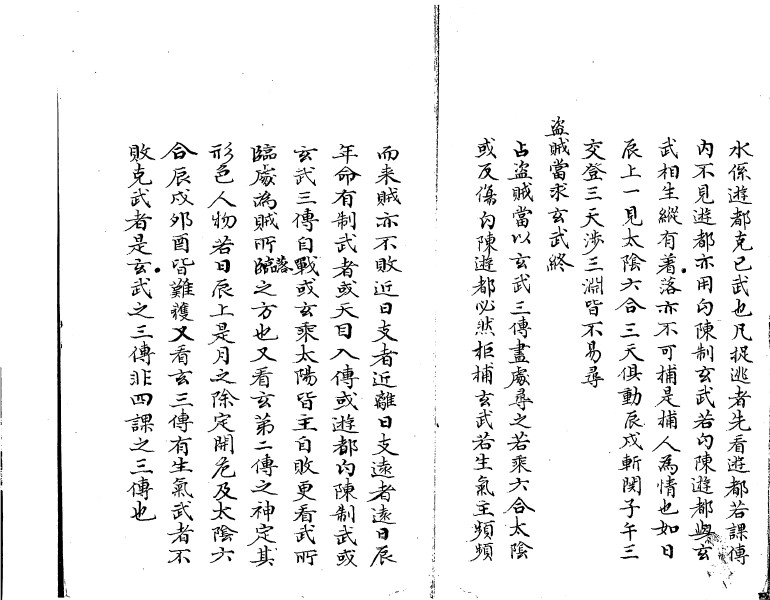 水係遊都克已武也凡捉逃者先看遊都若課傳
內不見遊都亦用勾陳制玄武若勾陳遊都與玄
武相生縱有著落亦不可捕是捕人為情也如日
辰上一見太陰六合三天俱動辰戌斬関子午三
交登三天涉三淵皆不易尋
盜賊當求玄武終
占盜賊當以玄武三傳盡處尋之若乘六合太陰
或反傷勾陳遊都必然拒捕玄武若生氣主頻頻
而来賊亦不敗近日支者近離日支遠者遠日辰
年命有制武者或天目入傳或遊都勾陳制武或
玄武三傳自戰或玄乘太陽皆主自敗更看武所
臨處為賊所臨落之方也又看玄第二傳之神定其
形色人物若日辰上是月之除定開危及太陰六
合辰戌卯酉皆難獲又看玄三傳有生氣武者不
敗克武者是玄武之三傳非四課之三傳也